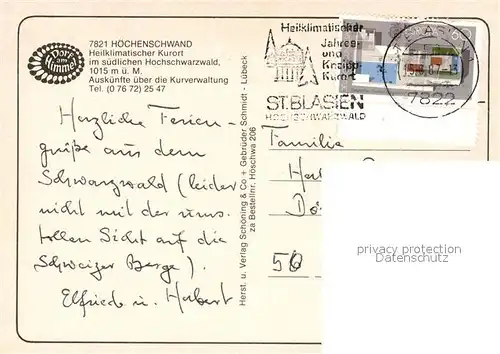 Dorf am Himmel
7821 HÖCHENSCHWAND
Heilklimatischer Kurort
im südlichen Hochschwarzwald,
1015 m ü. M.
Auskünfte über die Kurverwaltung
Tel. (0 76 72) 25 47
Herzliche Ferien-
grüße aus dem
Schwarzwald (leider
nicht mit der
tollen Sicht auf die
Schweizer Berge).
Elfriede u. Herbert
Herst. u. Verlag Schöning & Co + Gebrüder Schmidt - Lübeck
zu Bestellnr. Höschwa 206
Heilklimatischer
Jahres-
und
Kneipp-
Kurort
ST. BLASIEN
HOCHSCHWARZWALD
7822
Familie
privacy protection
Datenschutz